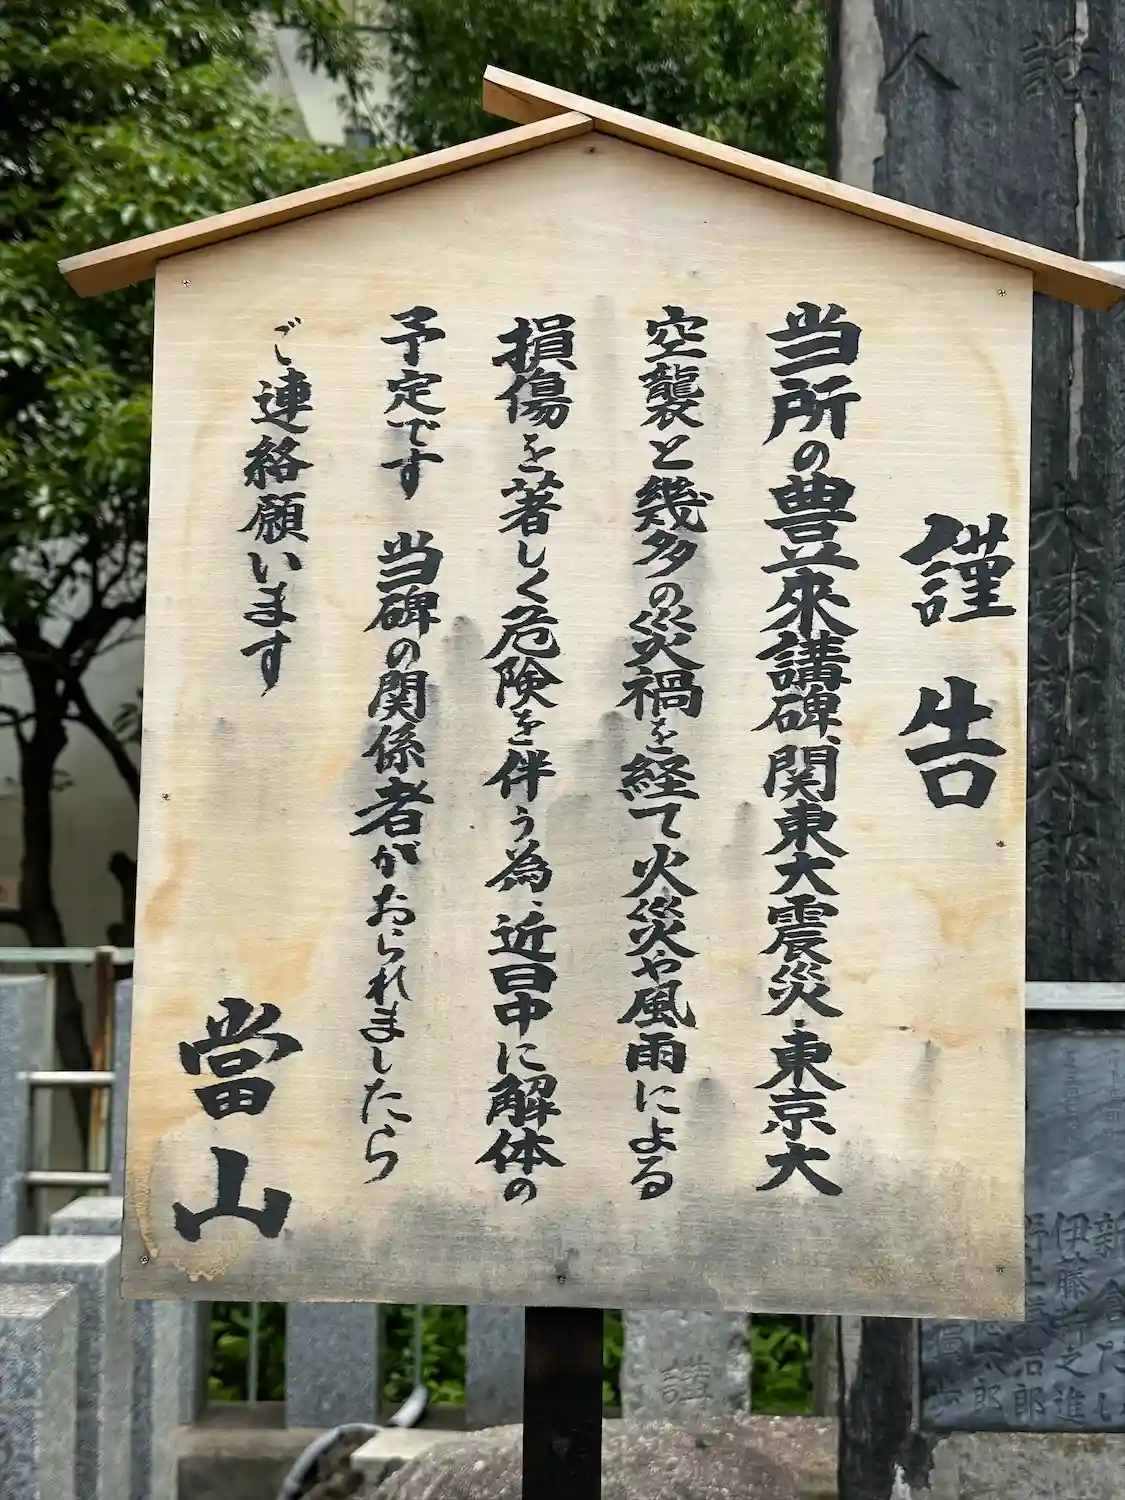 謹告
当所の豊川來講碑、関東大震災・東京大
空襲と幾多の災禍を経て火災や風雨による
損傷を著しく危険を伴う為、近日中に解体の
予定です 当碑の関係者がおられましたら
ご連絡願います
當山
伊藤新之進